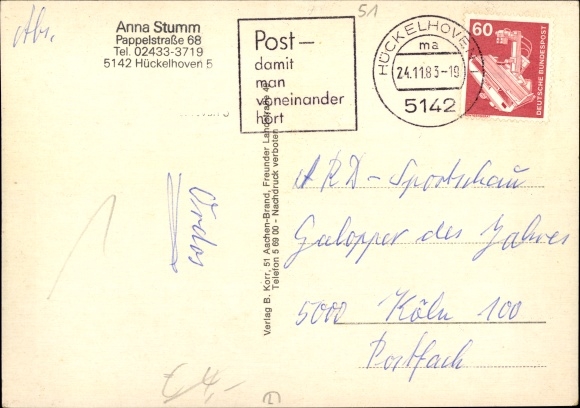 Abs.
Anna Stumm
Pappelstraße 68
Tel. 02433-3719
5142 Hückelhoven 5
51
Post—
damit
man
voneinander
hört
HÜCKELHOVEN
ma
24.11.83-19
5142
60
DEUTSCHE BUNDESPOST
Verlag B. Korr, 51 Aachen-Brand, Freunder Landstraße
Telefon 5 69 00 - Nachdruck verboten
Ordos
ARD-Sportschau
Galopper des Jahres
5000 Köln 100
Postfach
€ 4,-